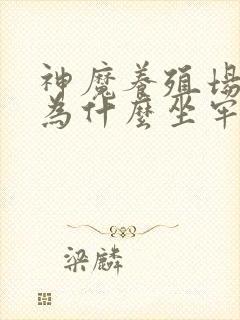 神魔養殖場
為什麼坐牢
梁麟